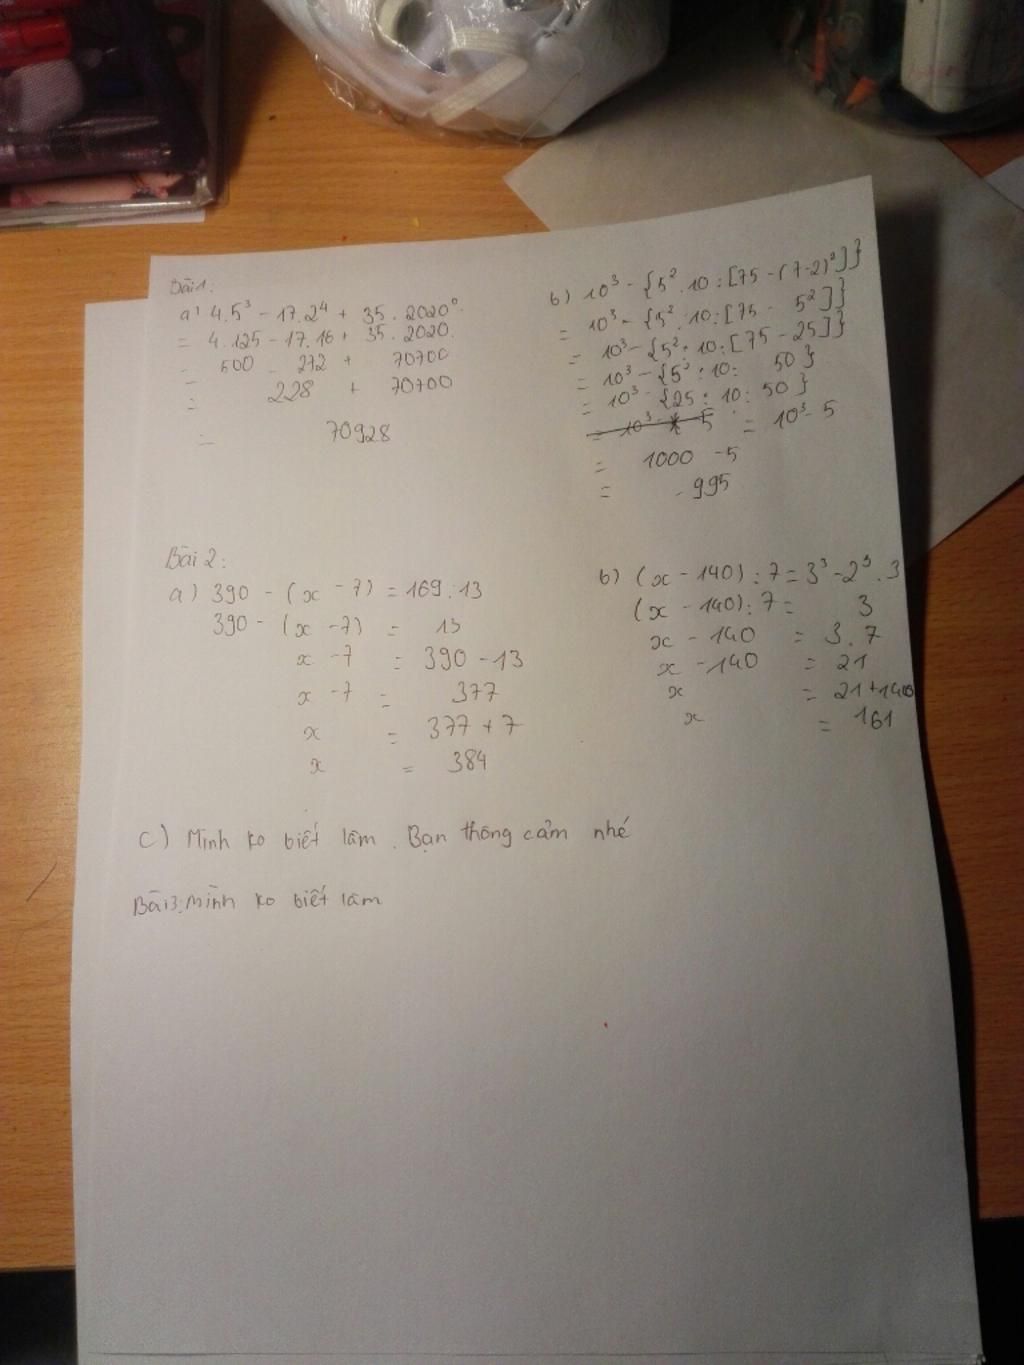 Bài 1:
a) 4.5³ - 17.2⁴ + 35.2020⁰
= 4.125 - 17.16 + 35.2020.
= 500 - 272 + 70700
= 228 + 70700
= 70928
b) 10³ - {5².10:[75-(7-2)²]}
= 10³ - {5².10:[75 - 5²]}
= 10³ - {5²:10:[75 - 25]}
= 10³ - {5²:10: 50}
= 10³ - {25:10:50}
= 10³ - 5 = 10³ - 5
= 1000 - 5
= 995
Bài 2:
a) 390 - (x - 7) = 169:13
390 - (x - 7) = 13
x - 7 = 390 - 13
x - 7 = 377
x = 377 + 7
x = 384
b) (x - 140) : 7 = 3³ - 2³.3
(x - 140) : 7 = 3
x - 140 = 3.7
x - 140 = 21
x = 21 + 140
x = 161
C) Mình ko biết làm. Bạn thông cảm nhé
Bài 3: mình ko biết làm